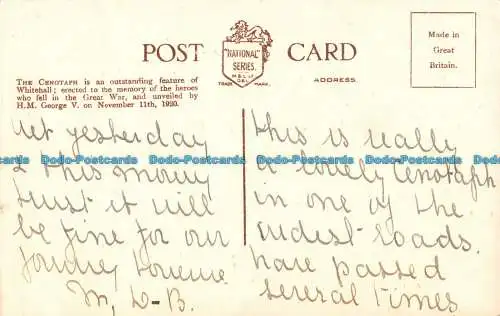 POST CARD
"NATIONAL"
SERIES
M & L Ld
TRADE MARK.
ADDRESS.
Made in
Great
Britain.
THE CENOTAPH is an outstanding feature of
Whitehall; erected to the memory of the heroes
who fell in the Great War, and unveiled by
H.M. George V. on November 11th, 1920.
Wet yesterday
& this morng
trust it will
be fine for our
journey
M, D-B.
this is really
a lovely Cenotaph
in one of the
widest roads.
have passed
several times
Dodo-Postcards Dodo-Postcards Dodo-Postcards Dodo-Postcards Dodo-Postcards